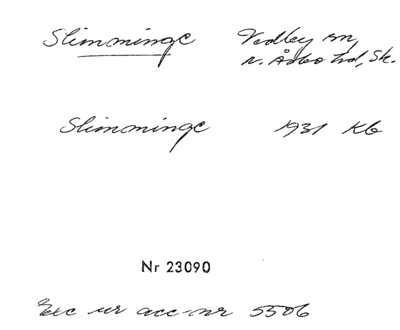 Slimminge Vedby sn,
N. Åsbo hd, Sk.
Slimminge 1931 Kb
Nr 23090
Exc ur acc-nr 5506